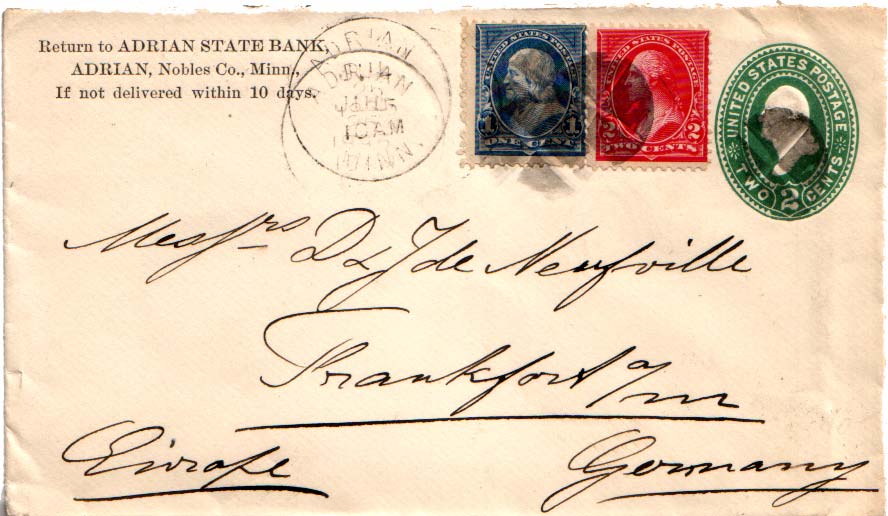 Return to ADRIAN STATE BANK,
ADRIAN, Nobles Co., Minn.,
If not delivered within 10 days.
ADRIAN
10 AM
MINN.
UNITED STATES POSTAGE
1 1
ONE CENT
UNITED STATES POSTAGE
2 2
TWO CENTS
UNITED STATES POSTAGE
TWO 2 CENTS
Messrs D & J de Neufville
Frankfort a/m
Europe Germany